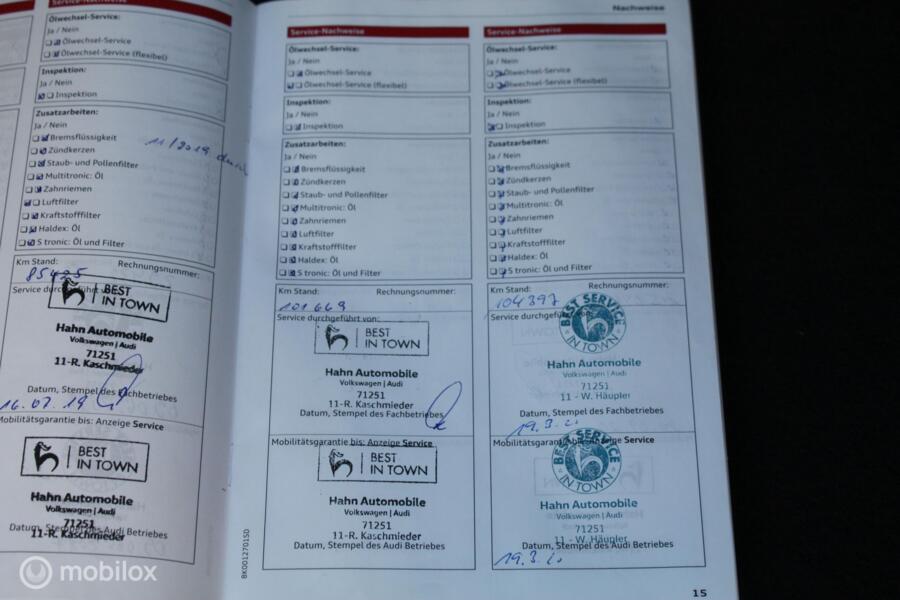 Service-Nachweise
Ölwechsel-Service:
Ja / Nein
Ölwechsel-Service
Ölwechsel-Service (flexibel)
Inspektion:
Ja / Nein
Inspektion
Zusatzarbeiten:
Ja / Nein
Bremsflüssigkeit
Zündkerzen
Staub- und Pollenfilter
Multitronic: Öl
Zahnriemen
Luftfilter
Kraftstofffilter
Haldex: Öl
S tronic: Öl und Filter
11/2019
Km Stand:
Rechnungsnummer:
85425
Service durchgeführt
BEST
IN TOWN
Hahn Automobile
Volkswagen | Audi
71251
11-R. Kaschmieder
Datum, Stempel des Fachbetriebes
16.07.19
Mobilitätsgarantie bis: Anzeige Service
BEST
IN TOWN
Hahn Automobile
Volkswagen | Audi
71251
Datum, Stempel des Audi Betriebes
11-R. Kaschmieder
Service-Nachweise
Ölwechsel-Service:
Ja / Nein
Ölwechsel-Service
Ölwechsel-Service (flexibel)
Inspektion:
Ja / Nein
Inspektion
Zusatzarbeiten:
Ja / Nein
Bremsflüssigkeit
Zündkerzen
Staub- und Pollenfilter
Multitronic: Öl
Zahnriemen
Luftfilter
Kraftstofffilter
Haldex: Öl
S tronic: Öl und Filter
Km Stand:
Rechnungsnummer:
101669
Service durchgeführt von:
BEST
IN TOWN
Hahn Automobile
Volkswagen | Audi
71251
11-R. Kaschmieder
Datum, Stempel des Fachbetriebes
Mobilitätsgarantie bis: Anzeige Service
BEST
IN TOWN
Hahn Automobile
Volkswagen | Audi
71251
11-R. Kaschmieder
Datum, Stempel des Audi Betriebes
8K0012701SD
Nachweise
Service-Nachweise
Ölwechsel-Service:
Ja / Nein
Ölwechsel-Service
Ölwechsel-Service (flexibel)
Inspektion:
Ja / Nein
Inspektion
Zusatzarbeiten:
Ja / Nein
Bremsflüssigkeit
Zündkerzen
Staub- und Pollenfilter
Multitronic: Öl
Zahnriemen
Luftfilter
Kraftstofffilter
Haldex: Öl
S tronic: Öl und Filter
Km Stand:
Rechnungsnummer:
104397
Service durchgeführt von:
BEST SERVICE
IN TOWN
Hahn Automobile
Volkswagen | Audi
71251
11 - W. Häupler
Datum, Stempel des Fachbetriebes
19.3.
Mobilitätsgarantie bis: Anzeige Service
BEST SERVICE
IN TOWN
Hahn Automobile
Volkswagen | Audi
71251
11 - W. Häupler
Datum, Stempel des Audi Betriebes
19.3.
15
mobilox